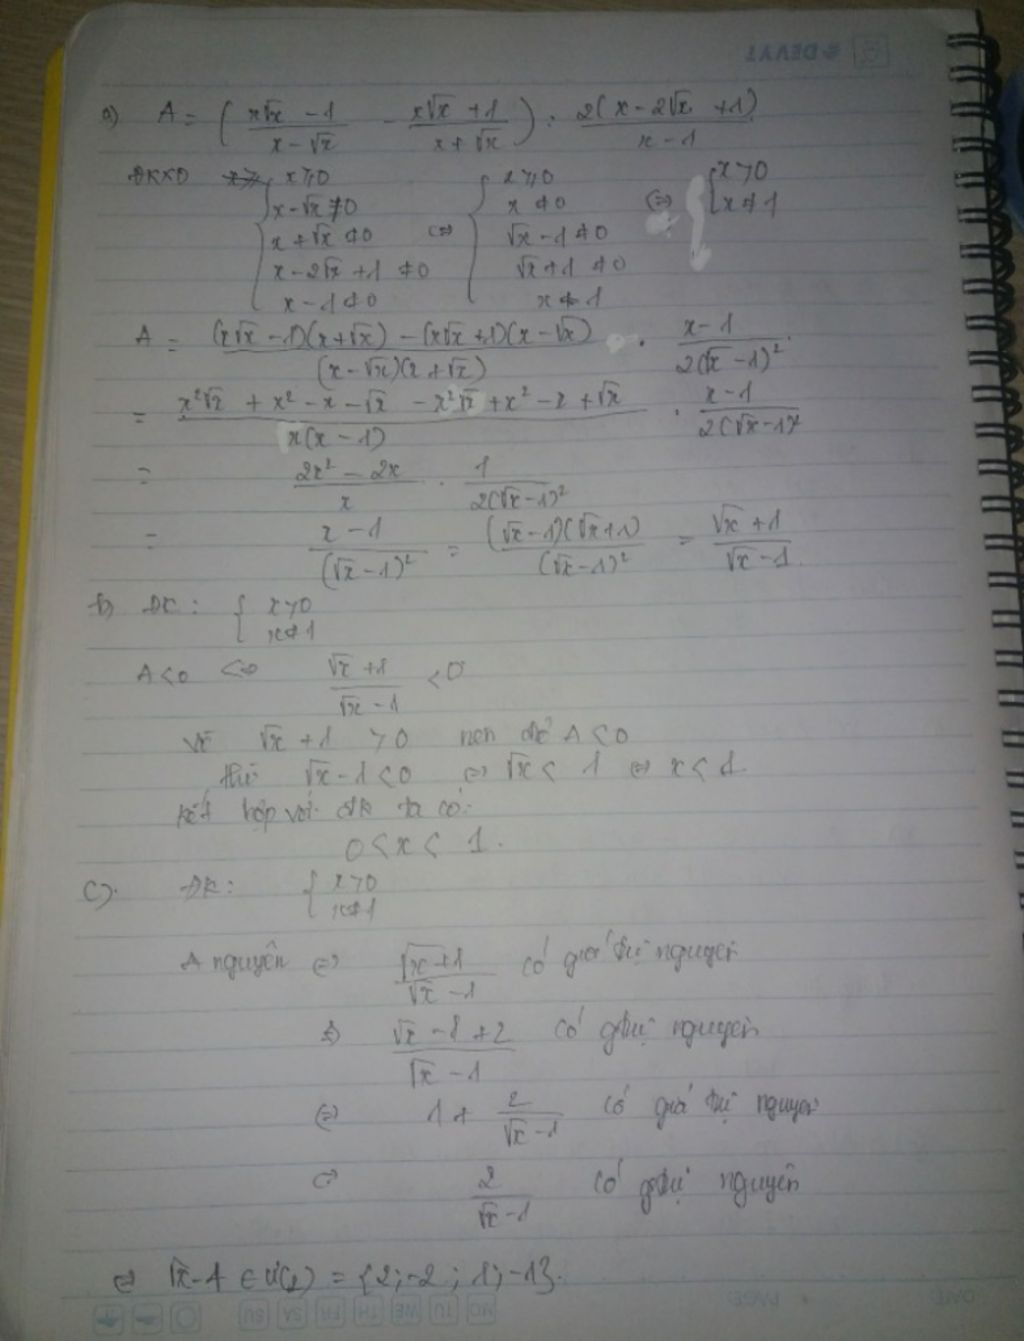 a) A = ( (x√x − 1)/(x − √x) − (x√x + 1)/(x + √x) ) : 2(x − 2√x + 1)/(x − 1)
ĐKXĐ { x ≥ 0 { x ≥ 0 ⇔ { x > 0
x − √x ≠ 0 x ≠ 0 x ≠ 1
x + √x ≠ 0 ⇔ √x − 1 ≠ 0
x − 2√x + 1 ≠ 0 √x + 1 ≠ 0
x − 1 ≠ 0 x ≠ 1
A = ((x√x − 1)(x + √x) − (x√x + 1)(x − √x))/((x − √x)(x + √x)) . (x − 1)/(2(√x − 1)²)
= (x²√x + x² − x − √x − x²√x + x² − x + √x)/(x(x − 1)) . (x − 1)/(2(√x − 1)²)
= (2x² − 2x)/x . 1/(2(√x − 1)²)
= (x − 1)/(√x − 1)² = ((√x − 1)(√x + 1))/(√x − 1)² = (√x + 1)/(√x − 1)
b) ĐK : { x > 0
x ≠ 1
A < 0 ⇔ (√x + 1)/(√x − 1) < 0
Vì √x + 1 > 0 nên để A < 0
thì √x − 1 < 0 ⇔ √x < 1 ⇔ x < 1
kết hợp với đk ta có:
0 < x < 1.
c) ĐK : { x > 0
x ≠ 1
A nguyên ⇔ (√x + 1)/(√x − 1) có giá trị nguyên
⇔ (√x − 1 + 2)/(√x − 1) có gtrị nguyên
⇔ 1 + 2/(√x − 1) có giá trị nguyên
⇔ 2/(√x − 1) có gtrị nguyên
⇔ √x − 1 ∈ Ư(2) = {2; −2; 1; −1}.